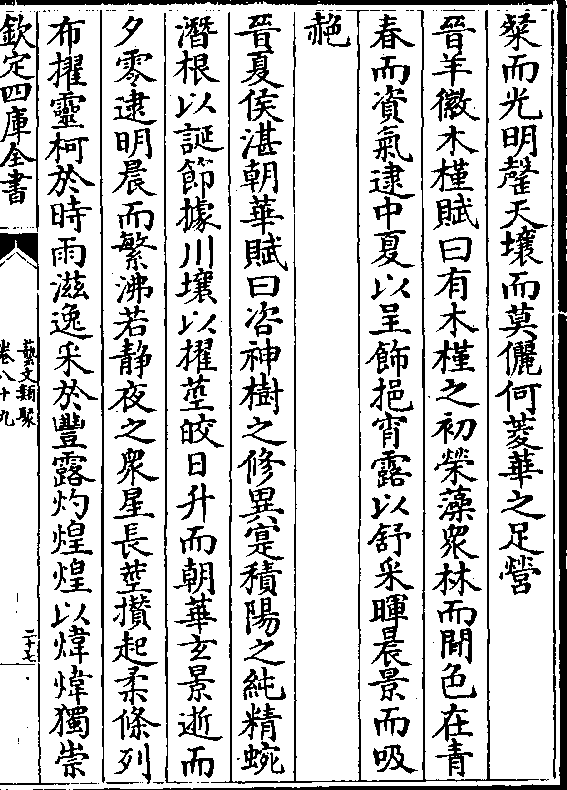 粲而光明罄天壤而莫儷何菱華之足營
晉羊徽木槿賦曰有木槿之初榮藻衆林而間色在青
春而資氣逮中夏以呈飾挹宵露以舒采暉晨景而吸
赩
晉夏侯湛朝華賦曰咨神樹之修異寔積陽之純精蜿
潛根以誕節據川壤以擢莖皎日升而朝華玄景逝而
夕零逮明晨而繁沸若静夜之衆星長莖攢起柔條列
布擢靈柯於時雨滋逸采於豐露灼煌煌以煒煒獨崇
欽定四庫全書
藝文類聚
卷八十九
二十七